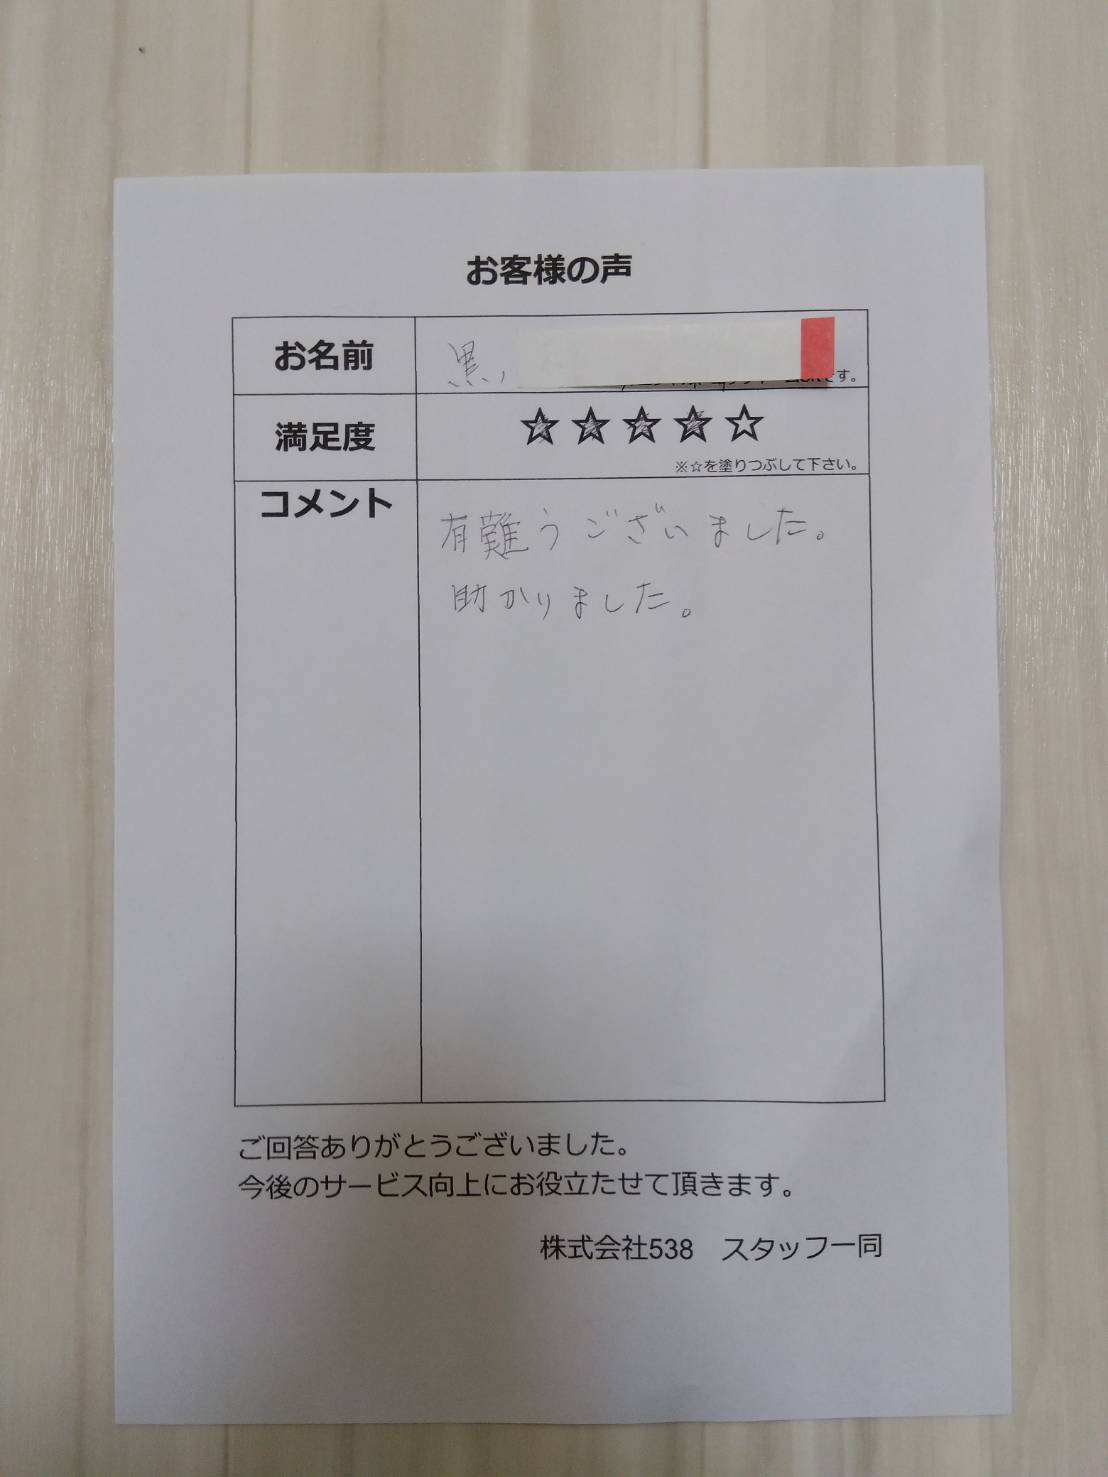 お客様の声
お名前
黒
す。
満足度
★★★★☆
※☆を塗りつぶして下さい。
コメント
有難うございました。
助かりました。
ご回答ありがとうございました。
今後のサービス向上にお役立たせて頂きます。
株式会社538　スタッフ一同